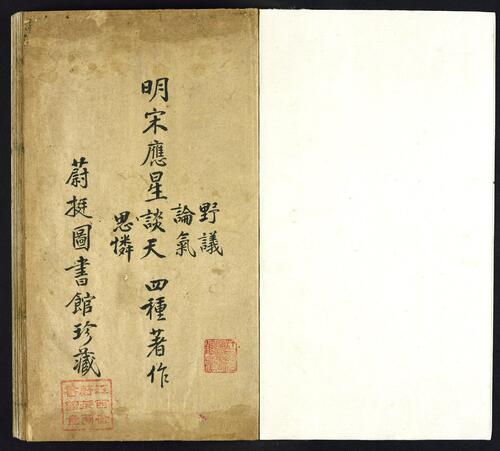 明宋應星
野議
論氣
談天
思憐
四種著作
蔚挺圖書館珍藏
江西省